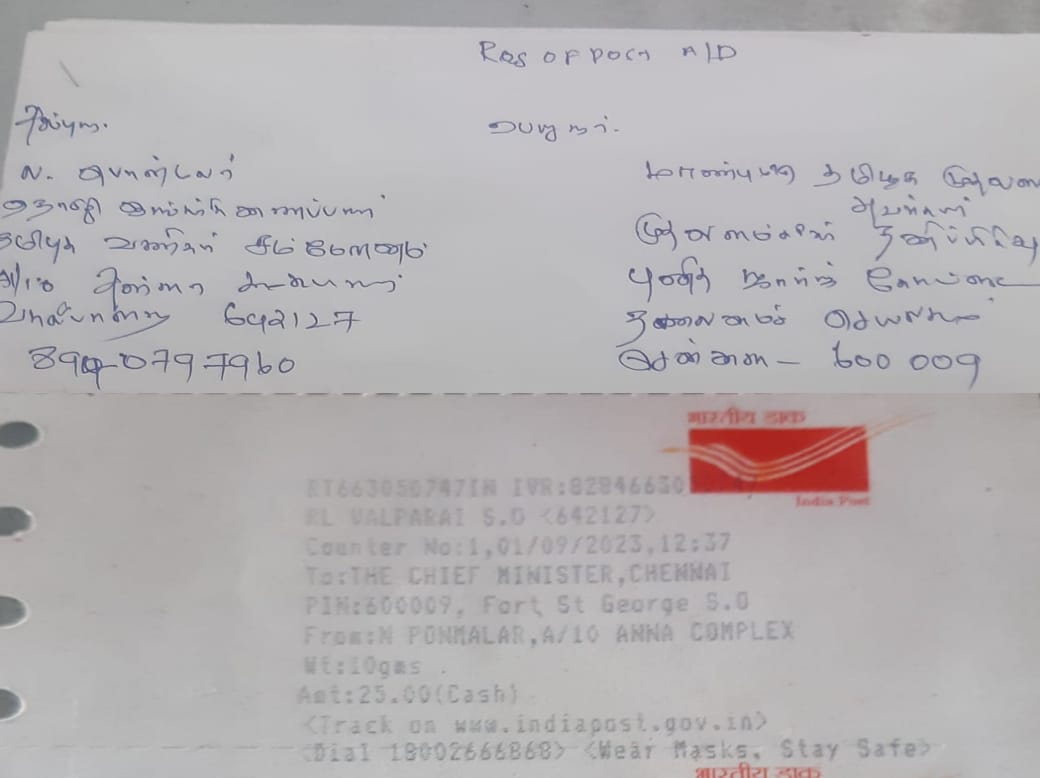 Regs OF POCT A/D
அனுப்புநர்.
பெறுநர்.
ந. பொன்மலர்
மாண்புமிகு தமிழக முதல்வர்
அவர்கள்
தமிழக
முதலமைச்சரின் தனிப்பிரிவு
A/10 அண்ணா காம்ப்ளக்ஸ்
புனித ஜார்ஜ் கோட்டை
வால்பாறை 642127
தலைமைச் செயலகம்
0797960
சென்னை - 600 009
भारतीय डाक
India Post
RT663050747IN IVR:82846630
RL VALPARAI S.O <642127>
Counter No:1,01/09/2023,12:37
To:THE CHIEF MINISTER,CHENNAI
PIN:600009, Fort St George S.O
From:N PONMALAR,A/10 ANNA COMPLEX
Wt:10gms
Amt:25.00(Cash)
<Track on www.indiapost.gov.in>
<Dial 18002666868> <Wear Masks, Stay Safe>
भारतीय डाक